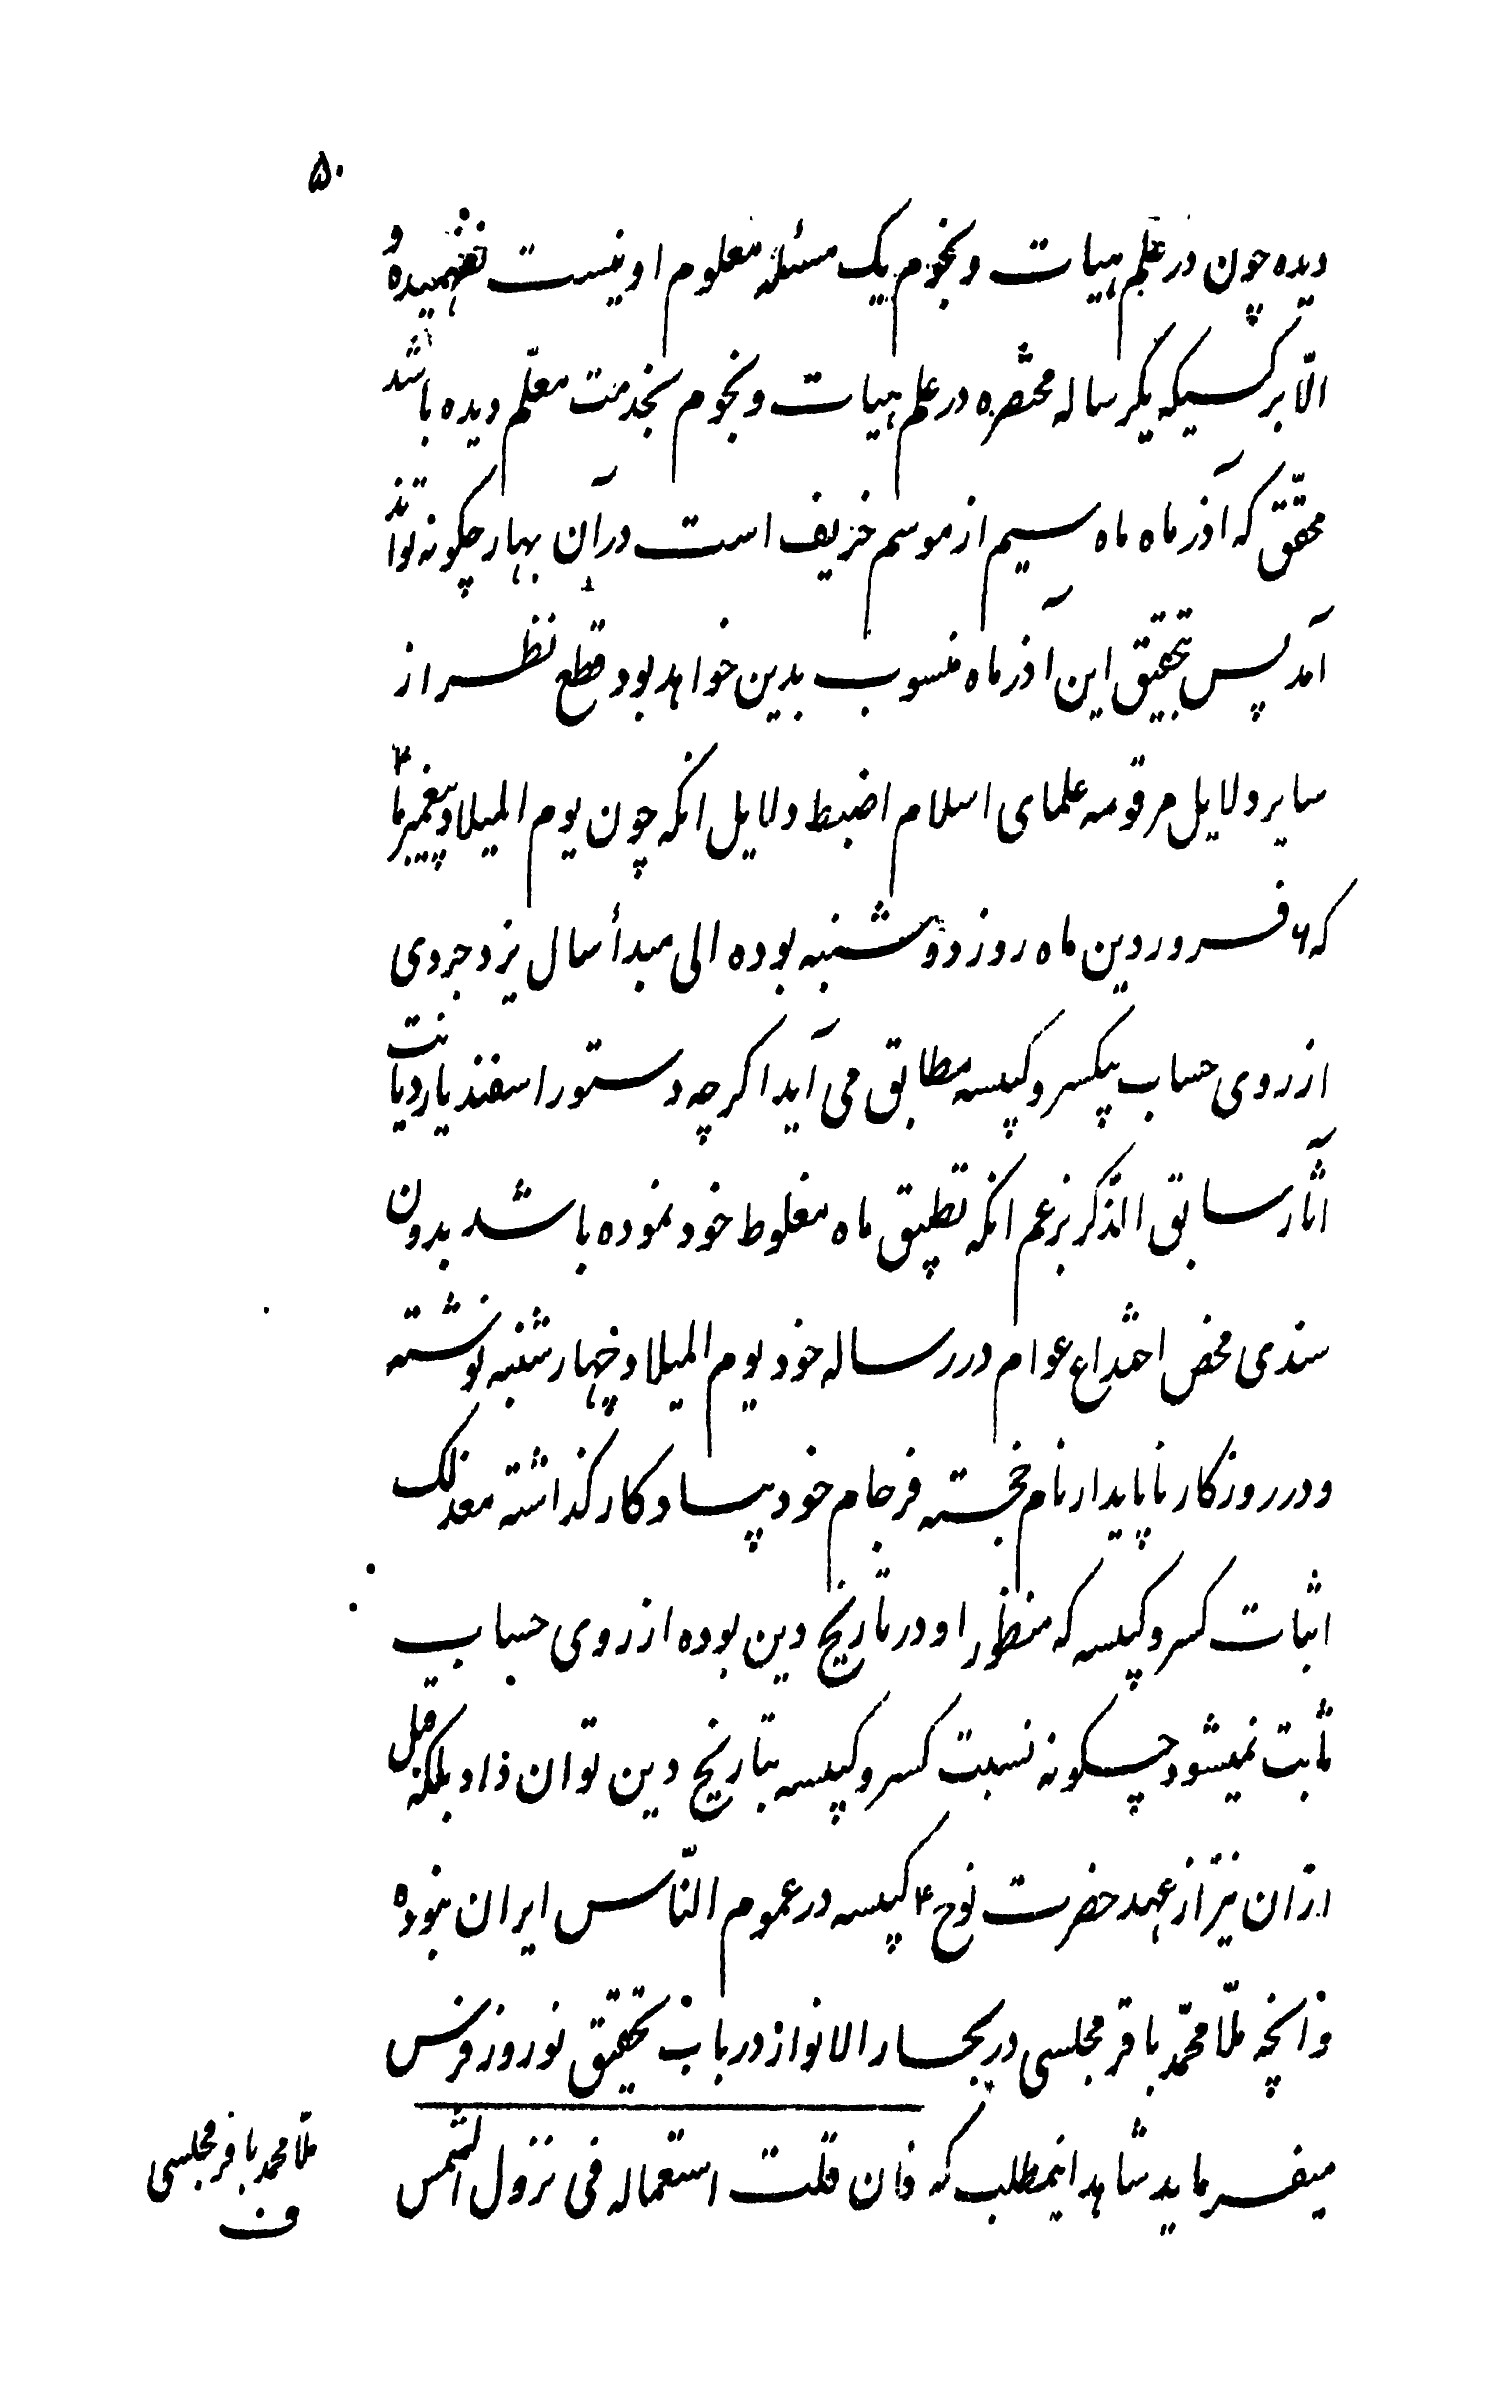 ۵۰
دیده چون در علم هیات و نجوم یک مسئله معلوم او نیست نفهمیده و
الّا بر کسیکه یکرساله مختصره در علم هیات و نجوم بخدمت معلّم دیده باشد
محقّق که آذر ماه ماه سیم از موسم خزیف است در آن بهار چکونه تواند
آمد پس بتحقیق این آذر ماه منسوب بدین خواهد بود قطع نظر از
سایر دلایل مرقومه علمای اسلام اضبط دلایل انکه چون یوم المیلاد پیغمبر ما
که ۶ فروردین ماه روز دوشنبه بوده الی مبدأ سال یزدجردی
از روی حساب بیکسر و کبیسه مطابق می آید اکر چه دستور اسفندیار دیانت
آثار سابق الذّکر بزعم انکه تطبیق ماه مغلوط خود نموده باشد بدون
سندی محض اخداع عوام در رساله خود یوم المیلاد چهارشنبه نوشته
و در روزکار ناپایدار نام خجسته فرجام خود بیادکار کذاشته معذلک
اثبات کسر و کبیسه که منظور او در تاریخ دین بوده از روی حساب
ثابت نمیشود چکونه نسبت کسر و کبیسه بتاریخ دین توان داد بلکه قبل
ازان نیز از عهد حضرت نوح ۴ کبیسه در عموم النّاس ایران نبوده
و انچه ملّا محمّد باقر مجلسی در بحار الانوار در باب تحقیق نوروز فرس
میفرماید شاهد اینمطلب که فان قلت استعماله فی نزول الشّمس
ملا محمد باقر مجلسی
ف